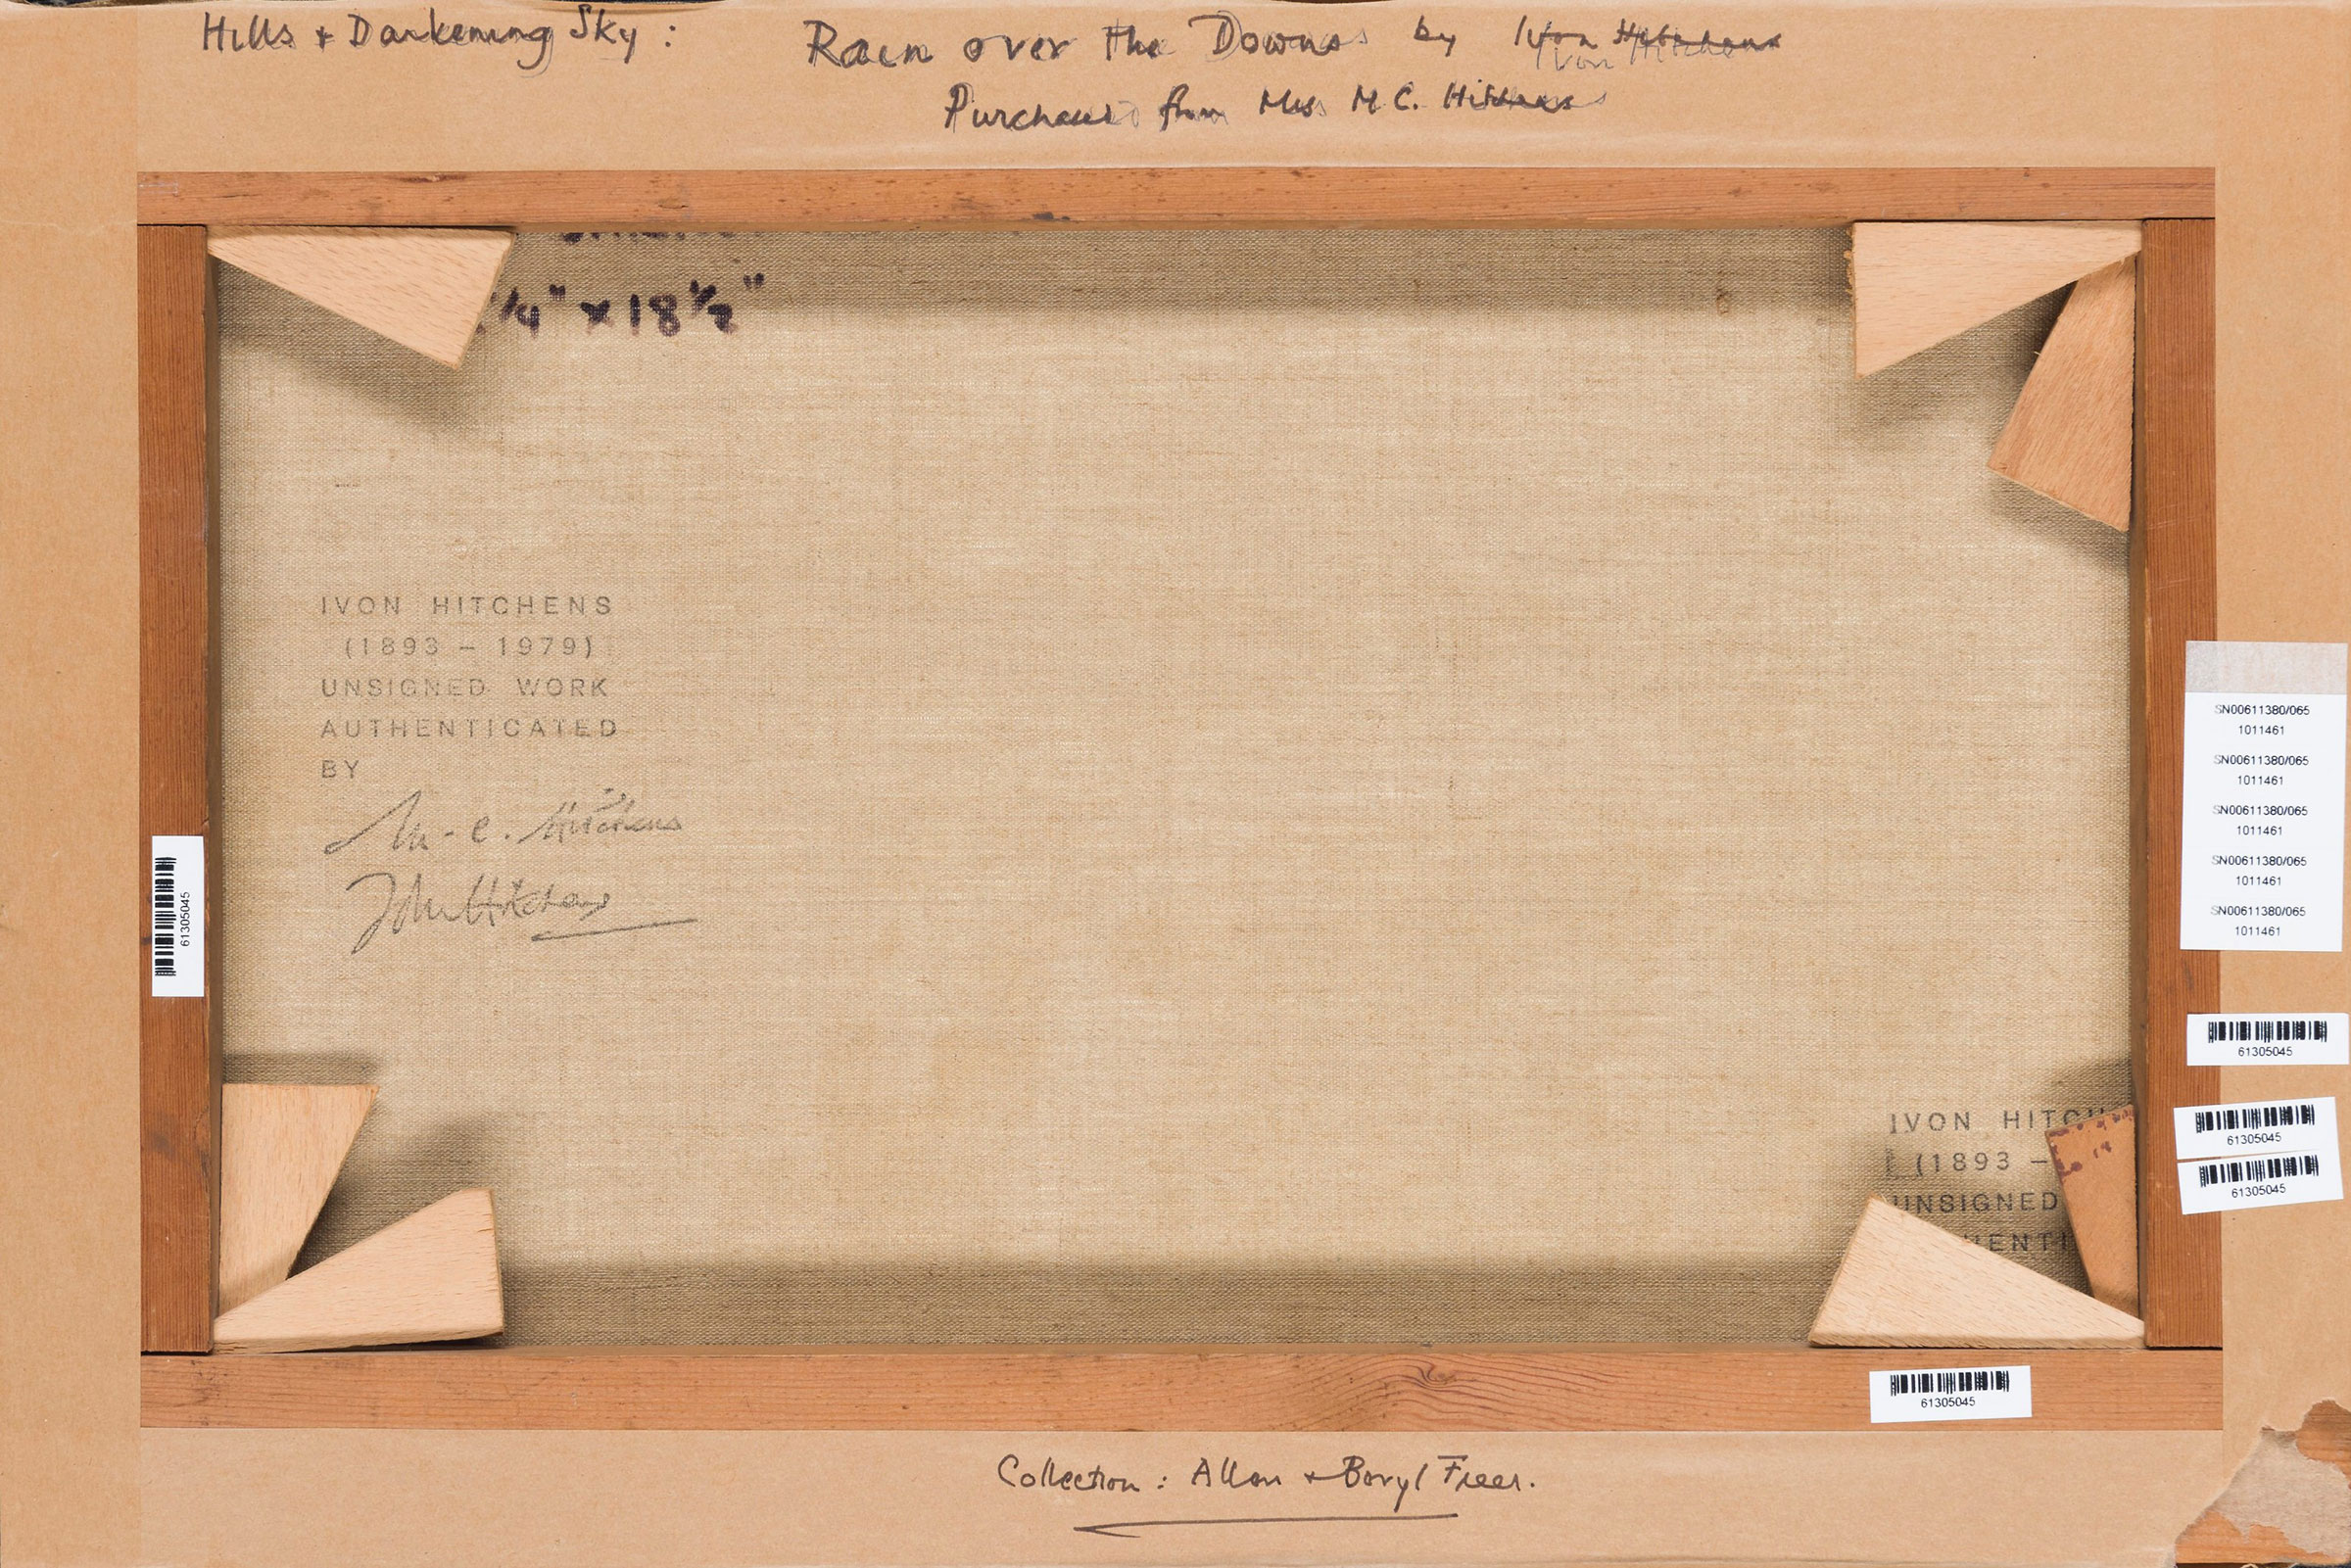 Hills + Darkening Sky :
Rain over the Downs by Ivon Hitchens
Ivon Hitchens
Purchased from Mrs M C. Hitchens
1/4" x 18 1/2"
IVON HITCHENS
(1893 – 1979)
UNSIGNED WORK
AUTHENTICATED
BY
M. C. Hitchens
John Hitchens
61305045
SN00611380/065
1011461
SN00611380/065
1011461
SN00611380/065
1011461
SN00611380/065
1011461
SN00611380/065
1011461
61305045
61305045
61305045
IVON HITCH
(1893 –
UNSIGNED
HENTI
61305045
Collection : Allan + Beryl Freer.